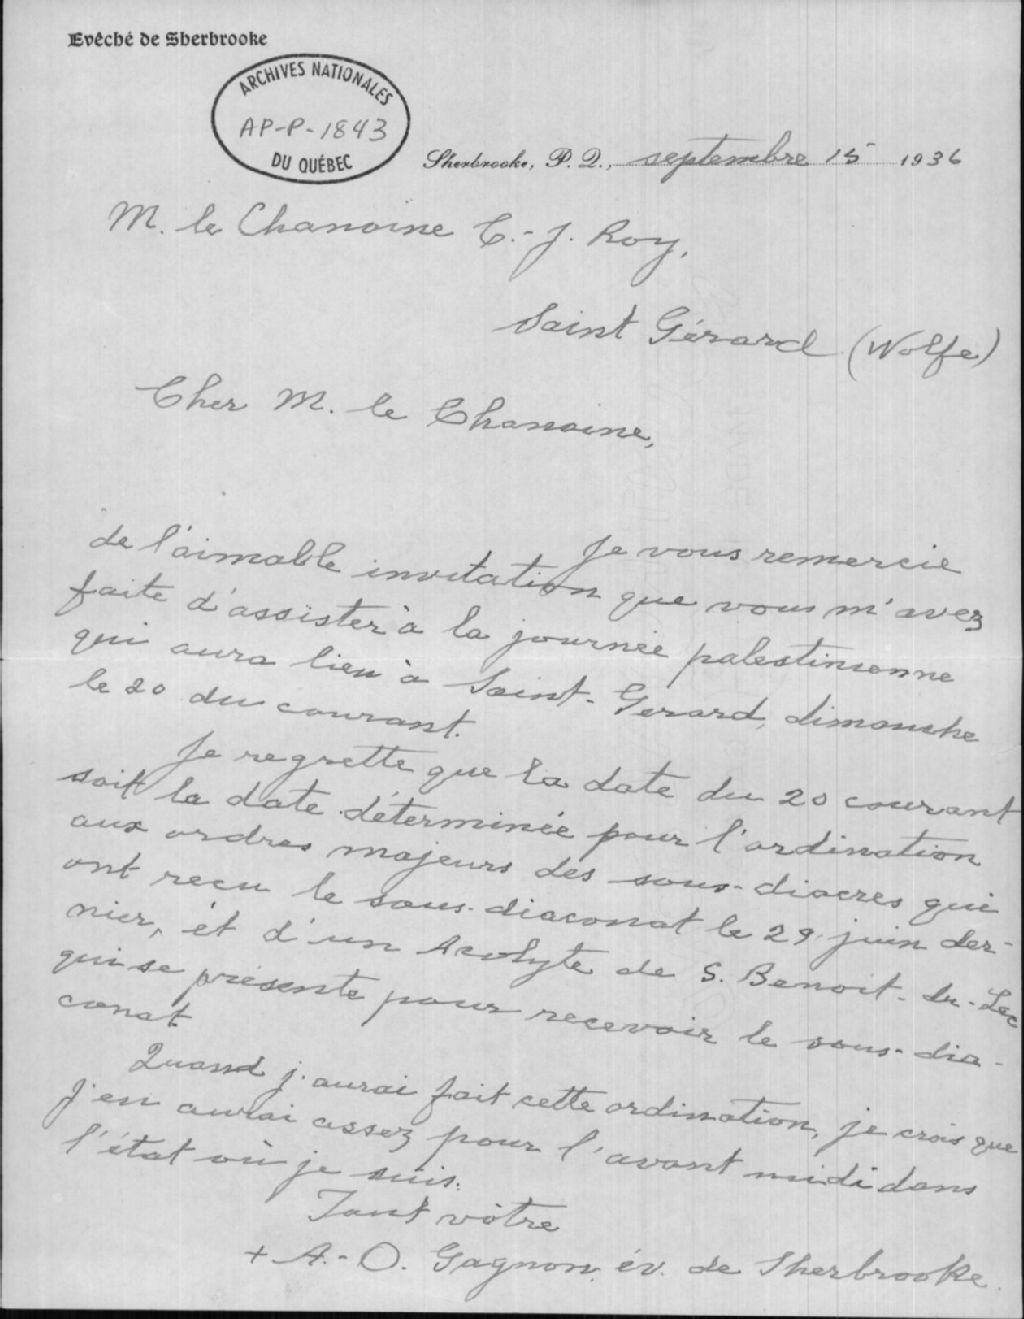 Evêché de Sherbrooke
ARCHIVES NATIONALES
AP-P-1843
DU QUÉBEC
Sherbrooke, P. Q., septembre 15 1936
M. le Chanoine C.-J. Roy,
Saint Gérard (Wolfe)
Cher M. le Chanoine,
Je vous remercie
de l'aimable invitation que vous m'avez
faite d'assister à la journée palestinienne
qui aura lieu à Saint-Gerard, dimanche
le 20 du courant.
Je regrette que la date du 20 courant
soit la date déterminée pour l'ordination
aux ordres majeurs des sous-diacres qui
ont reçu le sous-diaconat le 29 juin der-
nier, et d'un Acolyte de S. Benoit-du-Lac
qui se présente pour recevoir le sous-dia-
conat
Quand j'aurai fait cette ordination, je crois que
j'en aurai assez pour l'avant midi dans
l'état où je suis.
Tout vôtre
+ A.-O. Gagnon, év. de Sherbrooke.